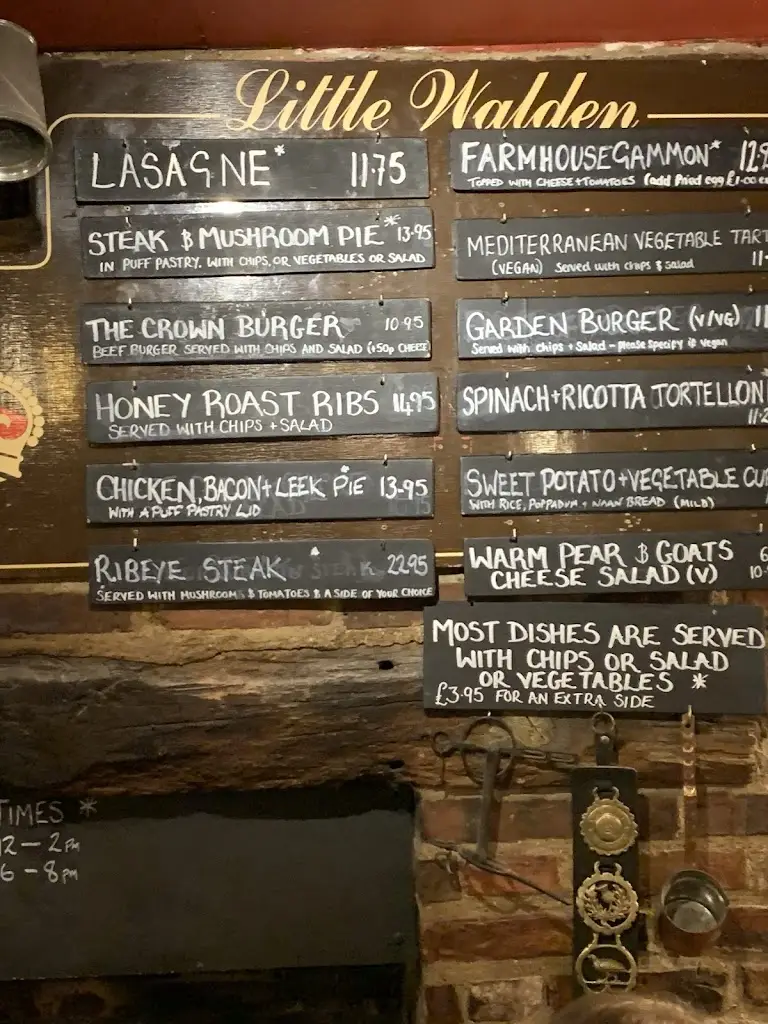 Little Walden
LASAGNE* 11.75
STEAK & MUSHROOM PIE* 13.95
IN PUFF PASTRY. WITH CHIPS, OR VEGETABLES OR SALAD
THE CROWN BURGER 10.95
BEEF BURGER SERVED WITH CHIPS AND SALAD (+50p CHEESE
HONEY ROAST RIBS 14.95
SERVED WITH CHIPS + SALAD
CHICKEN, BACON + LEEK PIE* 13.95
WITH A PUFF PASTRY LID
RIBEYE STEAK 22.95
SERVED WITH MUSHROOMS & TOMATOES & A SIDE OF YOUR CHOICE
FARMHOUSE GAMMON* 12.9
TOPPED WITH CHEESE + TOMATOES (add fried egg £1.00 ex
MEDITERRANEAN VEGETABLE TART
(VEGAN) Served with chips & salad 11.
GARDEN BURGER (V/VG) 11
Served with chips + Salad - please specify if vegan
SPINACH + RICOTTA TORTELLONI
11.2
SWEET POTATO + VEGETABLE CU
WITH RICE, POPPADUM + NAAN BREAD (MILD)
WARM PEAR & GOATS 6
CHEESE SALAD (V) 10.
MOST DISHES ARE SERVED
WITH CHIPS OR SALAD
OR VEGETABLES *
£3.95 FOR AN EXTRA SIDE
TIMES *
12 - 2PM
6 - 8PM